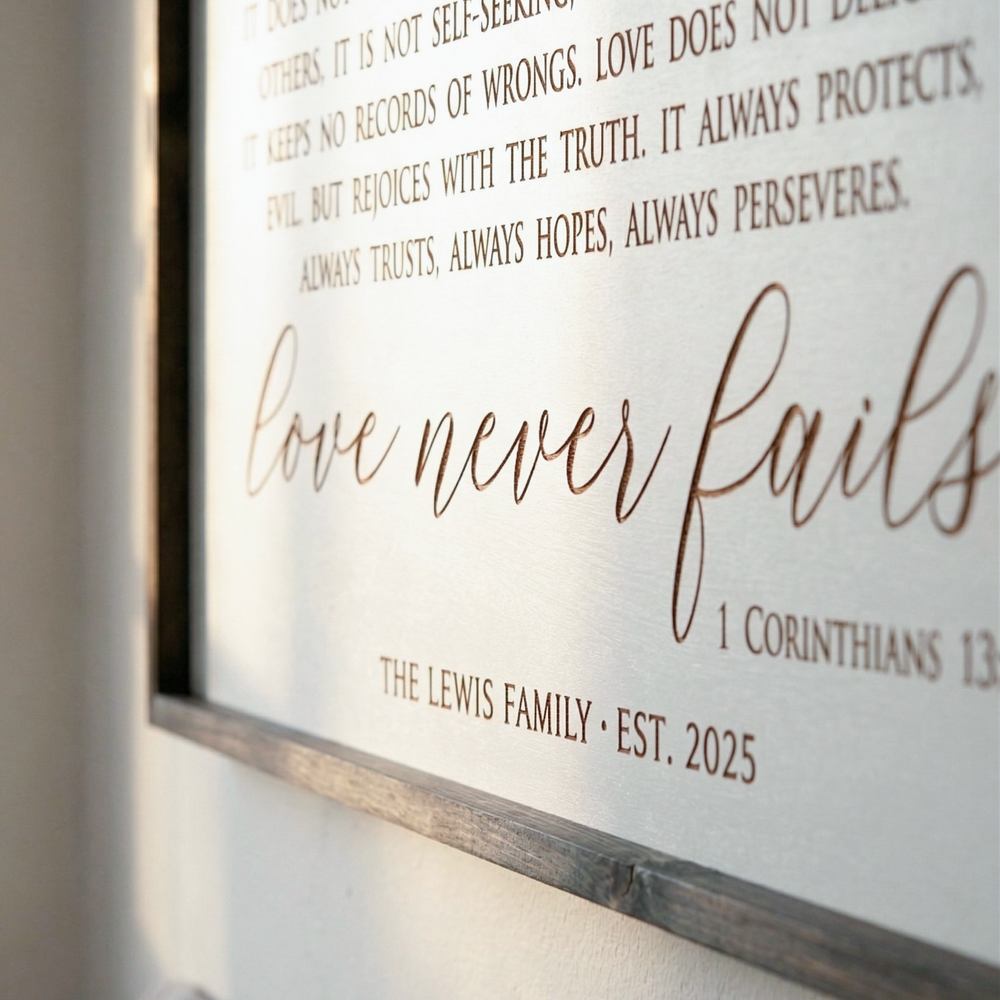 IT DOES NOT
OTHERS, IT IS NOT SELF-SEEKING,
IT KEEPS NO RECORDS OF WRONGS. LOVE DOES NOT
EVIL, BUT REJOICES WITH THE TRUTH. IT ALWAYS PROTECTS,
ALWAYS TRUSTS, ALWAYS HOPES, ALWAYS PERSEVERES.
love never fails
1 CORINTHIANS 13:
THE LEWIS FAMILY • EST. 2025